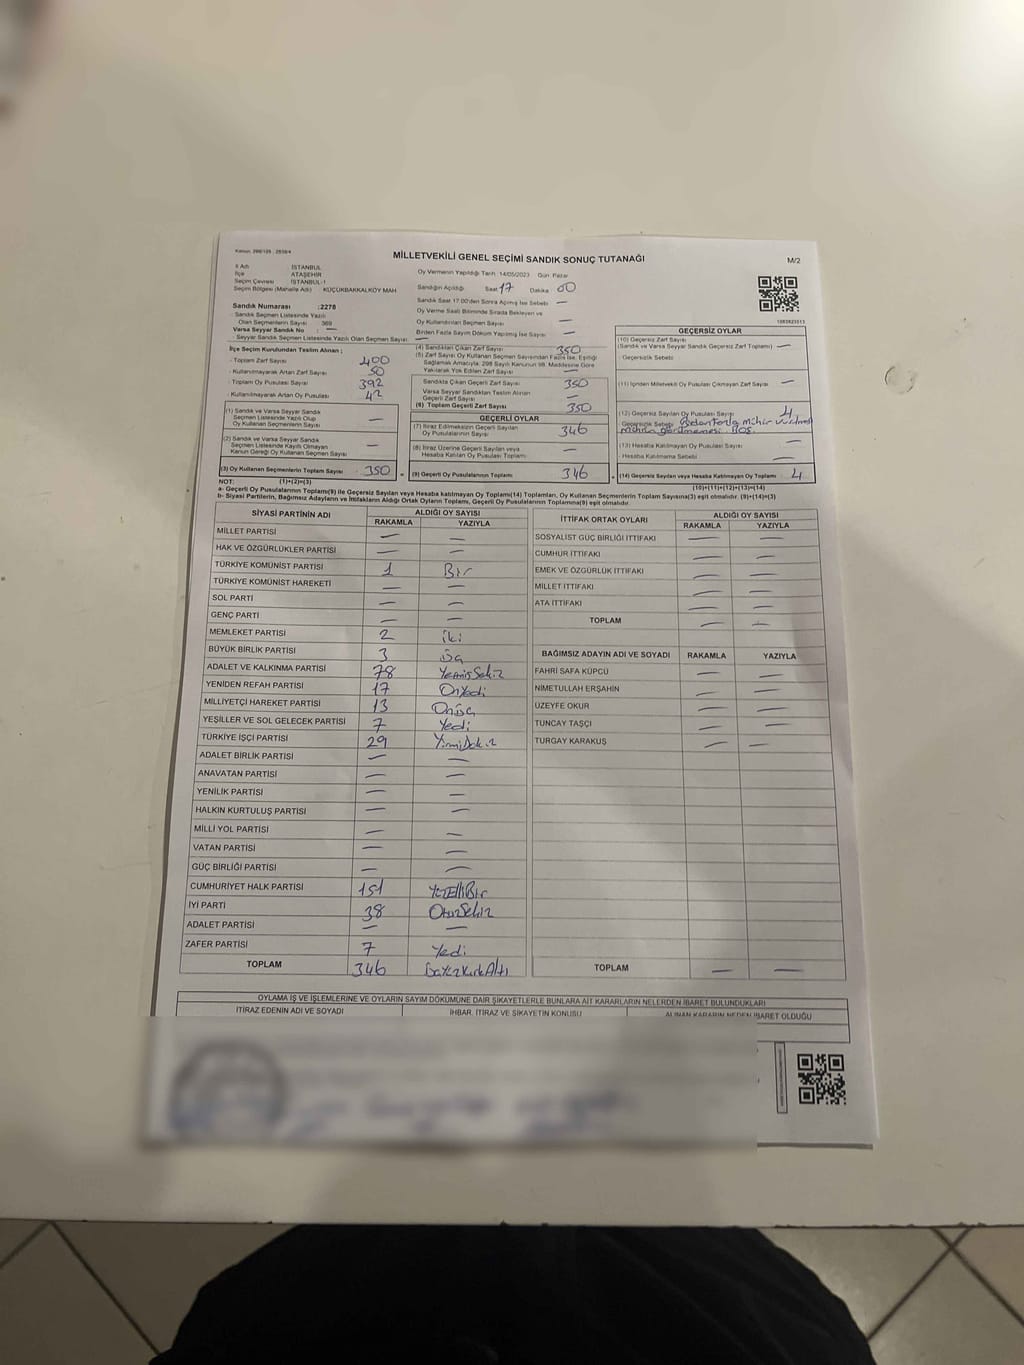 MİLLETVEKİLİ GENEL SEÇİMİ SANDIK SONUÇ TUTANAĞI
M/2
İl Adı İSTANBUL
İlçe ATAŞEHİR
Seçim Çevresi İSTANBUL-1
Seçim Bölgesi (Mahalle Adı) KÜÇÜKBAKKALKÖY MAH
Oy Vermenin Yapıldığı Tarih: 14/05/2023 Gün: Pazar
Sandığın Açıldığı Saat 17 Dakika 00
Sandık Saat 17:00'den Sonra Açılmış İse Sebebi —
Oy Verme Saati Bitiminde Sırada Bekleyen ve
Oy Kullandırılan Seçmen Sayısı —
Birden Fazla Sayım Döküm Yapılmış İse Sayısı —
Sandık Numarası :2278
- Sandık Seçmen Listesinde Yazılı
Olan Seçmenlerin Sayısı 369
Varsa Seyyar Sandık No : —
Seyyar Sandık Seçmen Listesinde Yazılı Olan Seçmen Sayısı: —
İlçe Seçim Kurulundan Teslim Alınan ;
- Toplam Zarf Sayısı 400
- Kullanılmayarak Artan Zarf Sayısı 50
- Toplam Oy Pusulası Sayısı 392
- Kullanılmayarak Artan Oy Pusulası 42
(1) Sandık ve Varsa Seyyar Sandık
Seçmen Listesinde Yazılı Olup
Oy Kullanan Seçmenlerin Sayısı —
(2) Sandık ve Varsa Seyyar Sandık
Seçmen Listesinde Kayıtlı Olmayan
Kanun Gereği Oy Kullanan Seçmen Sayısı —
(3) Oy Kullanan Seçmenlerin Toplam Sayısı 350
(1)+(2)=(3)
(4) Sandıktan Çıkan Zarf Sayısı 350
(5) Zarf Sayısı Oy Kullanan Seçmen Sayısından Fazla İse, Eşitliği
Sağlamak Amacıyla; 298 Sayılı Kanunun 98. Maddesine Göre
Yakılarak Yok Edilen Zarf Sayısı —
Sandıkta Çıkan Geçerli Zarf Sayısı 350
Varsa Seyyar Sandıktan Teslim Alınan
Geçerli Zarf Sayısı —
(6) Toplam Geçerli Zarf Sayısı 350
GEÇERLİ OYLAR
(7) İtiraz Edilmeksizin Geçerli Sayılan
Oy Pusulalarının Sayısı 346
(8) İtiraz Üzerine Geçerli Sayılan veya
Hesaba Katılan Oy Pusulası Toplamı —
(9) Geçerli Oy Pusulalarının Toplamı 346
GEÇERSİZ OYLAR
(10) Geçersiz Zarf Sayısı
(Sandık ve Varsa Seyyar Sandık Geçersiz Zarf Toplamı) —
- Geçersizlik Sebebi
(11) İçinden Milletvekili Oy Pusulası Çıkmayan Zarf Sayısı —
(12) Geçersiz Sayılan Oy Pusulası Sayısı 4
- Geçersizlik Sebebi
(13) Hesaba Katılmayan Oy Pusulası Sayısı —
- Hesaba Katılmama Sebebi —
(14) Geçersiz Sayılan veya Hesaba Katılmayan Oy Toplamı 4
(10)+(11)+(12)+(13)=(14)
NOT:
a- Geçerli Oy Pusulalarının Toplamı(9) ile Geçersiz Sayılan veya Hesaba katılmayan Oy Toplamı(14) Toplamları, Oy Kullanan Seçmenlerin Toplam Sayısına(3) eşit olmalıdır. (9)+(14)=(3)
b- Siyasi Partilerin, Bağımsız Adayların ve İttifakların Aldığı Ortak Oyların Toplamı, Geçerli Oy Pusulalarının Toplamına(9) eşit olmalıdır.
SİYASİ PARTİNİN ADI ALDIĞI OY SAYISI
RAKAMLA YAZIYLA
MİLLET PARTİSİ — —
HAK VE ÖZGÜRLÜKLER PARTİSİ — —
TÜRKİYE KOMÜNİST PARTİSİ 1 Bir
TÜRKİYE KOMÜNİST HAREKETİ — —
SOL PARTİ — —
GENÇ PARTİ — —
MEMLEKET PARTİSİ 2 iki
BÜYÜK BİRLİK PARTİSİ 3 üç
ADALET VE KALKINMA PARTİSİ 78 YetmişSekiz
YENİDEN REFAH PARTİSİ 17 OnYedi
MİLLİYETÇİ HAREKET PARTİSİ 13 Onüç
YEŞİLLER VE SOL GELECEK PARTİSİ 7 Yedi
TÜRKİYE İŞÇİ PARTİSİ 29 YirmiDokuz
ADALET BİRLİK PARTİSİ — —
ANAVATAN PARTİSİ — —
YENİLİK PARTİSİ — —
HALKIN KURTULUŞ PARTİSİ — —
MİLLİ YOL PARTİSİ — —
VATAN PARTİSİ — —
GÜÇ BİRLİĞİ PARTİSİ — —
CUMHURİYET HALK PARTİSİ 151 YüzElliBir
İYİ PARTİ 38 OtuzSekiz
ADALET PARTİSİ — —
ZAFER PARTİSİ 7 Yedi
TOPLAM 346 ÜçYüzKırkAltı
İTTİFAK ORTAK OYLARI ALDIĞI OY SAYISI
RAKAMLA YAZIYLA
SOSYALİST GÜÇ BİRLİĞİ İTTİFAKI — —
CUMHUR İTTİFAKI — —
EMEK VE ÖZGÜRLÜK İTTİFAKI — —
MİLLET İTTİFAKI — —
ATA İTTİFAKI — —
TOPLAM — —
BAĞIMSIZ ADAYIN ADI VE SOYADI RAKAMLA YAZIYLA
FAHRİ SAFA KÜPCÜ — —
NİMETULLAH ERŞAHİN — —
ÜZEYFE OKUR — —
TUNCAY TAŞÇI — —
TURGAY KARAKUŞ — —
TOPLAM — —
OYLAMA İŞ VE İŞLEMLERİNE VE OYLARIN SAYIM DÖKÜMÜNE DAİR ŞİKAYETLERLE BUNLARA AİT KARARLARIN NELERDEN İBARET BULUNDUKLARI
İTİRAZ EDENİN ADI VE SOYADI İHBAR, İTİRAZ VE ŞİKAYETİN KONUSU ALINAN KARARIN NEDEN İBARET OLDUĞU